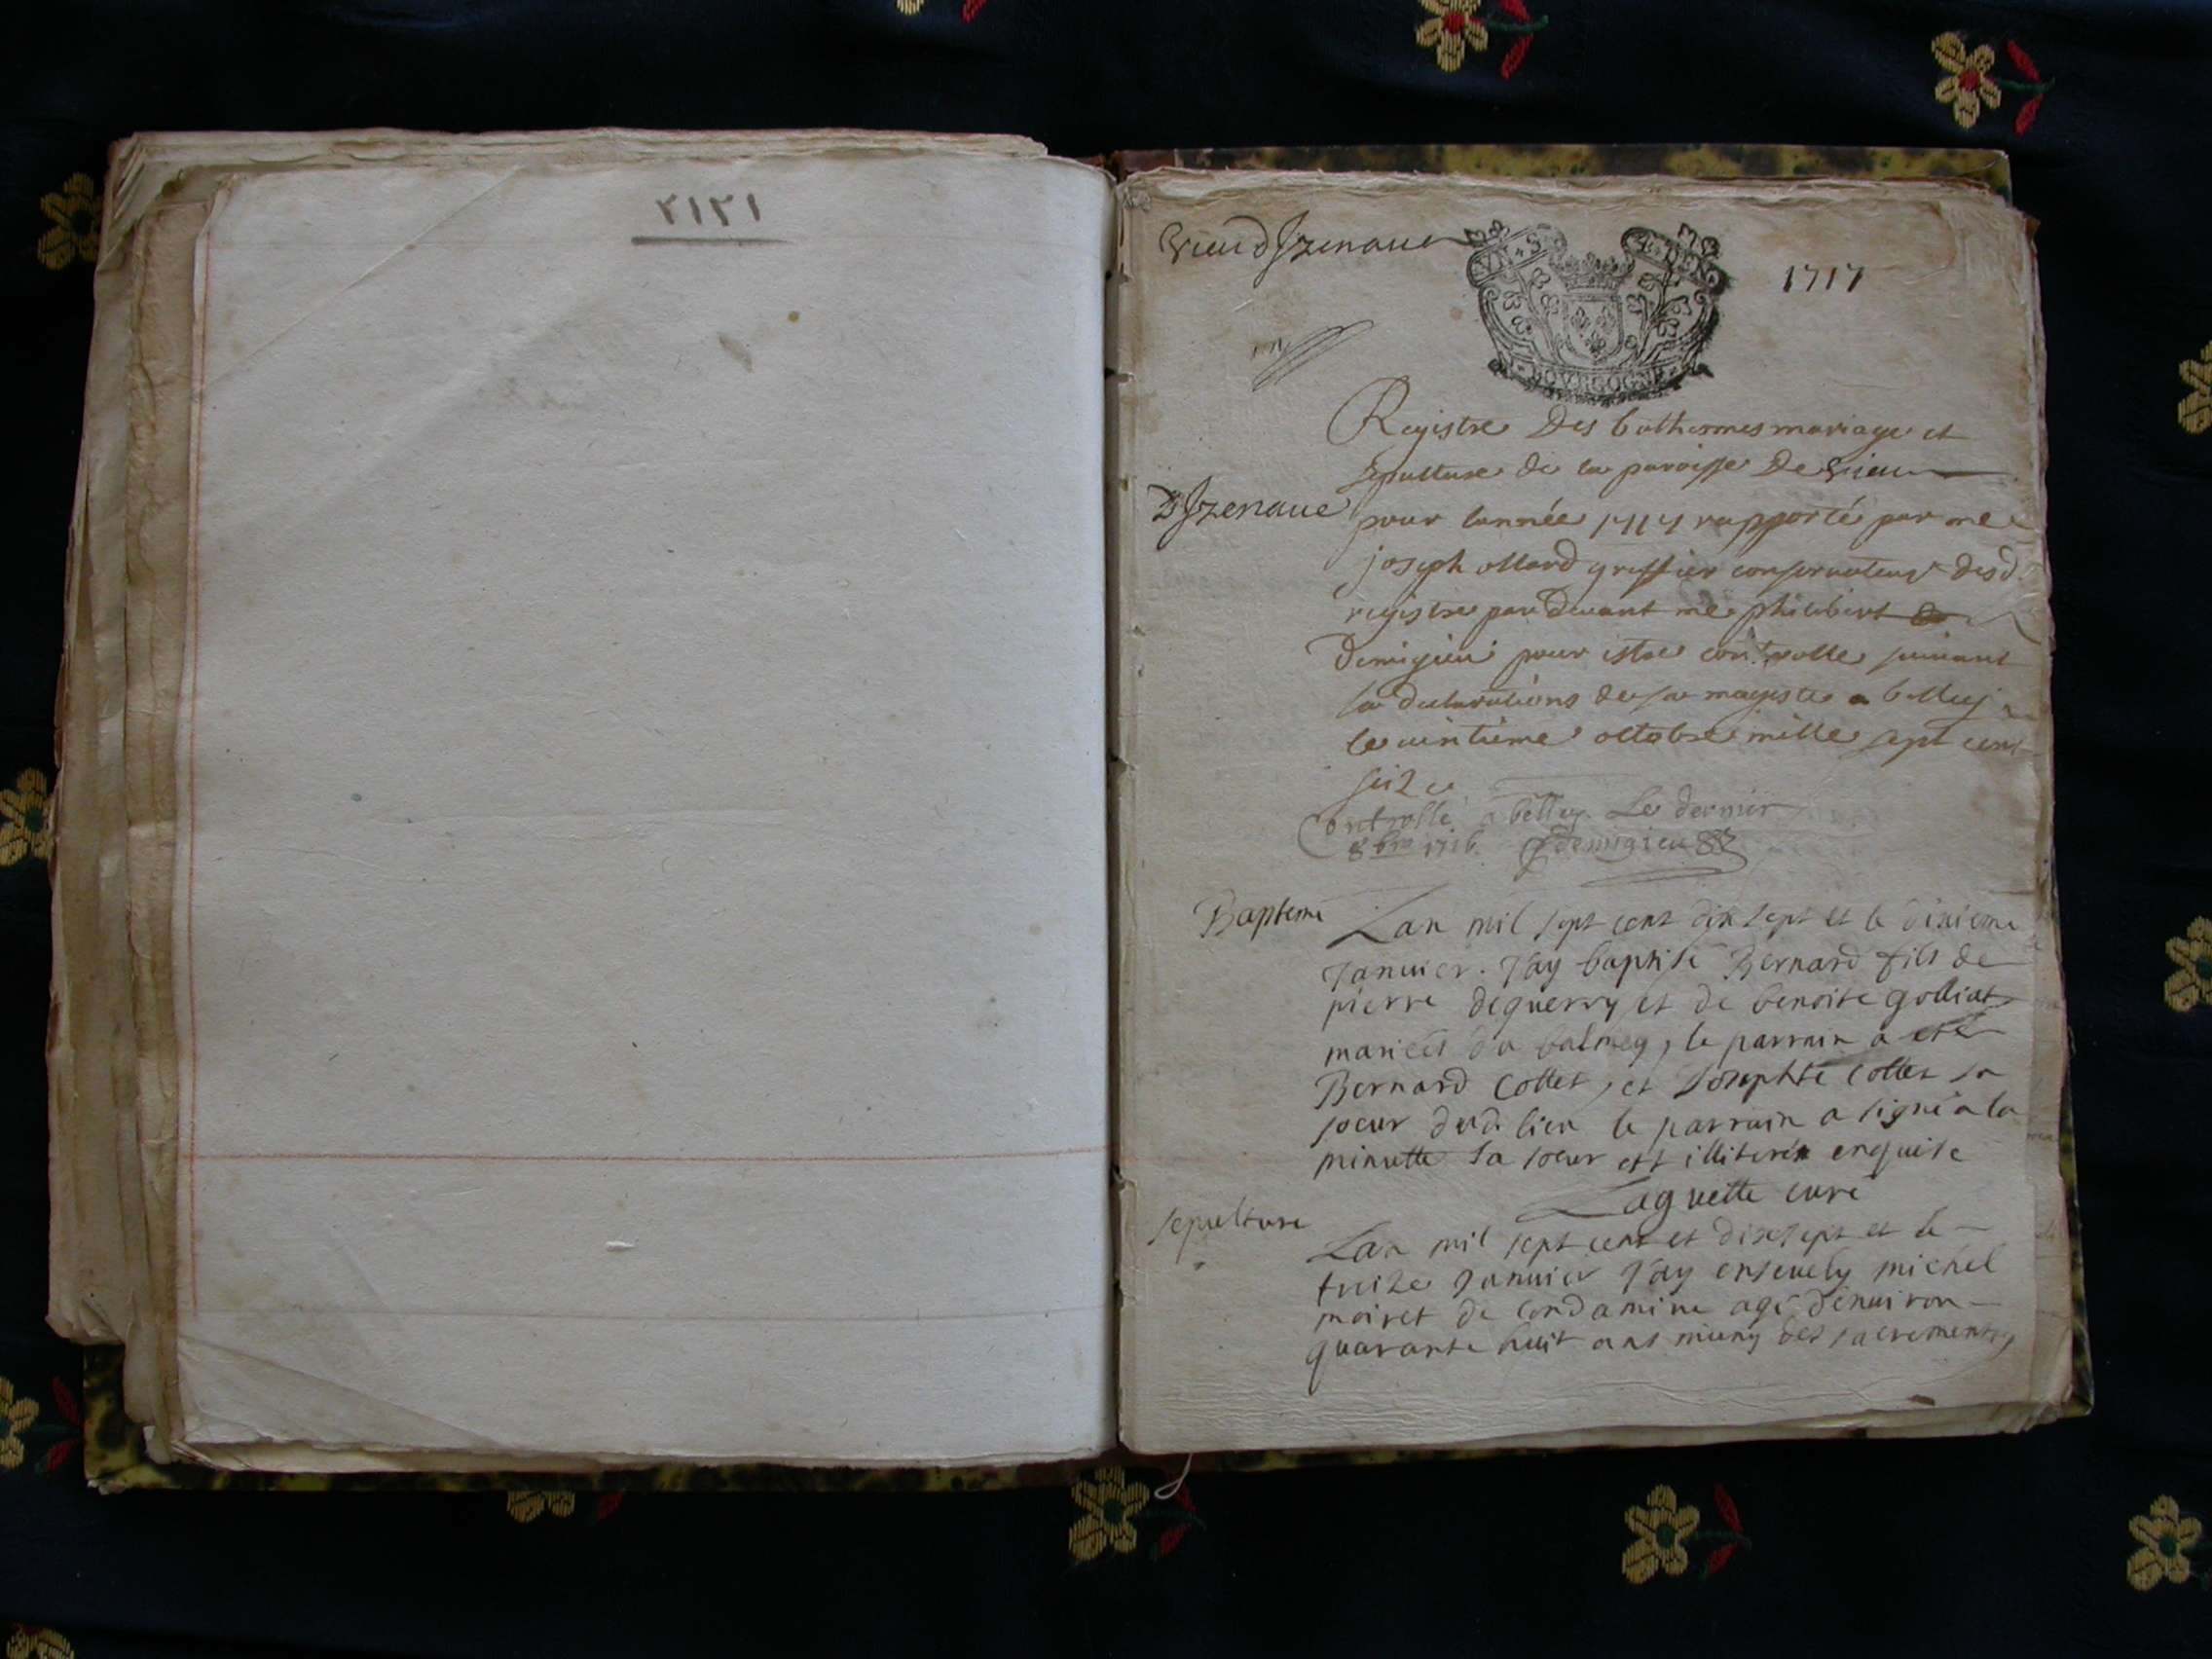 1717
Vieu d'Izenave
VN S
DEN
BOVRGOGNE
Registre Des bathesmes mariage et
sepulture de la paroisse De Vieu
D'Izenave
pour lannée 1717 rapporté par me
joseph ollard greffier conservateur desd
registre par devant me philibert
Demigieu pour estre controlle suivant
la declarations de sa mageste a belley
le vintieme octobre mille sept cent
seize
Controllé a belley Le dernier
8bre 1716 Demigieu
Bapteme
Lan mil sept cent dix sept et le dixieme
Janvier. J'ay baptisé Bernard fils de
pierre dequerry et de benoite golliat
mariés du balmey, le parrain a esté
Bernard Collet, et Josephte Collet sa
soeur dud. lieu le parrain a signé a la
minutte la soeur est illiterée enquise
Laguette curé
sepulture
Lan mil sept cent et dixsept et le
treize Janvier J'ay ensevely michel
moiret de Condamine agé d'environ
quarante huit ans muny des sacrements